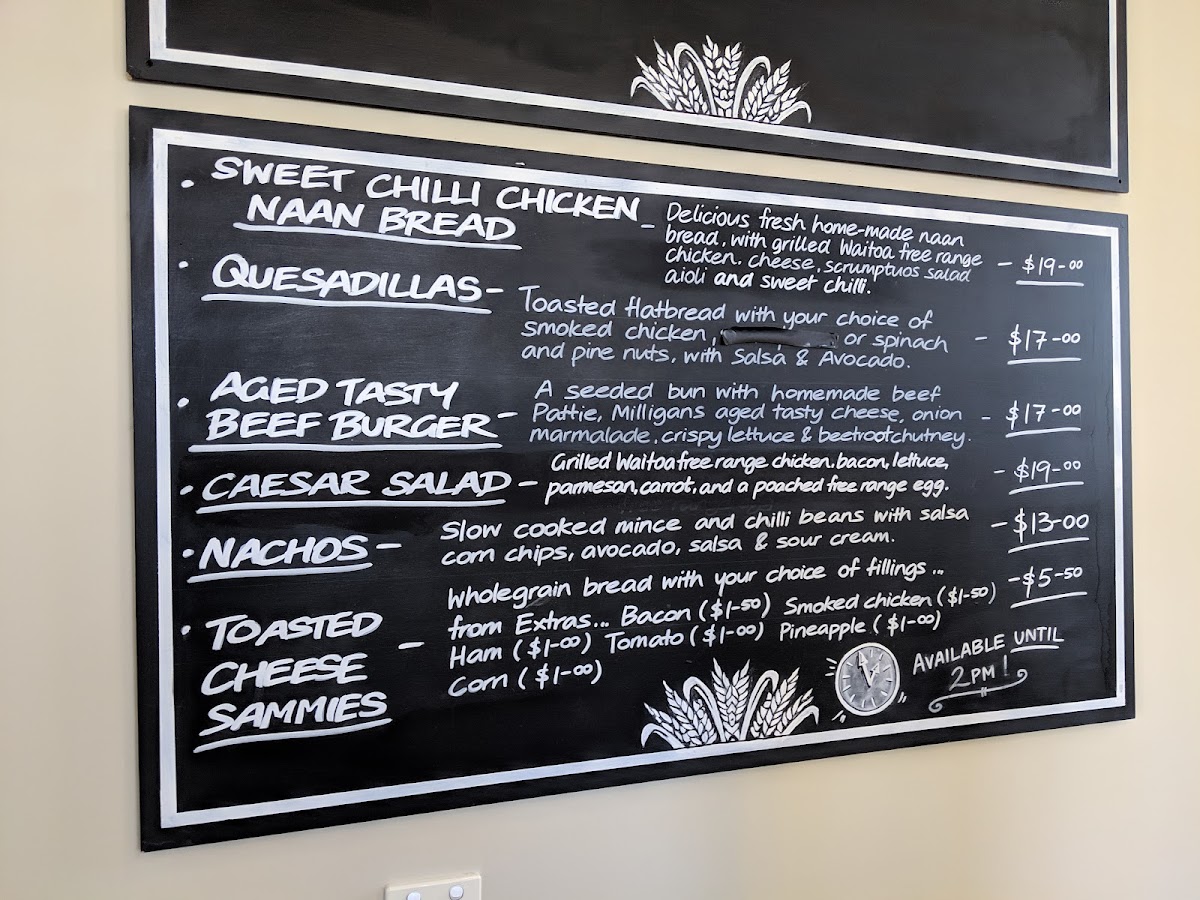 • SWEET CHILLI CHICKEN
NAAN BREAD -
Delicious fresh home-made naan
bread, with grilled Waitoa free range
chicken. cheese, scrumptuos salad
aioli and sweet chilli.
- $19-00
• QUESADILLAS -
Toasted flatbread with your choice of
smoked chicken, or spinach
and pine nuts, with Salsa & Avocado.
- $17-00
• AGED TASTY
BEEF BURGER -
A seeded bun with homemade beef
Pattie, Milligans aged tasty cheese, onion
marmalade, crispy lettuce & beetroot chutney.
- $17-00
• CAESAR SALAD -
Grilled Waitoa free range chicken. bacon, lettuce,
parmesan, carrot, and a poached free range egg.
- $19-00
• NACHOS -
Slow cooked mince and chilli beans with salsa
corn chips, avocado, salsa & sour cream.
- $13-00
• TOASTED
CHEESE
SAMMIES -
Wholegrain bread with your choice of fillings...
from Extras... Bacon ($1-50) Smoked chicken ($1-50)
Ham ($1-00) Tomato ($1-00) Pineapple ($1-00)
Corn ($1-00)
- $5-50
AVAILABLE UNTIL
2PM!